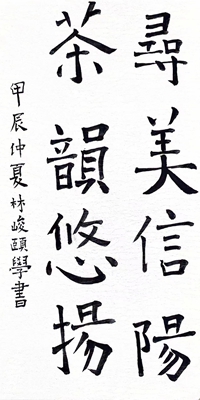 尋美信陽
茶韻悠揚
甲辰仲夏林峻頤學書